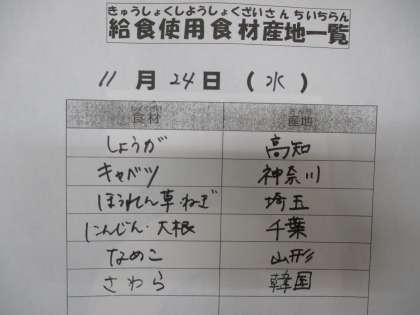 きゅうしょくしようしょくざいさんちいちらん
給食使用食材産地一覧
11月24日(水)
食材 産地
しょうが 高知
キャベツ 神奈川
ほうれん草・ねぎ 埼玉
にんじん・大根 千葉
なめこ 山形
さわら 韓国